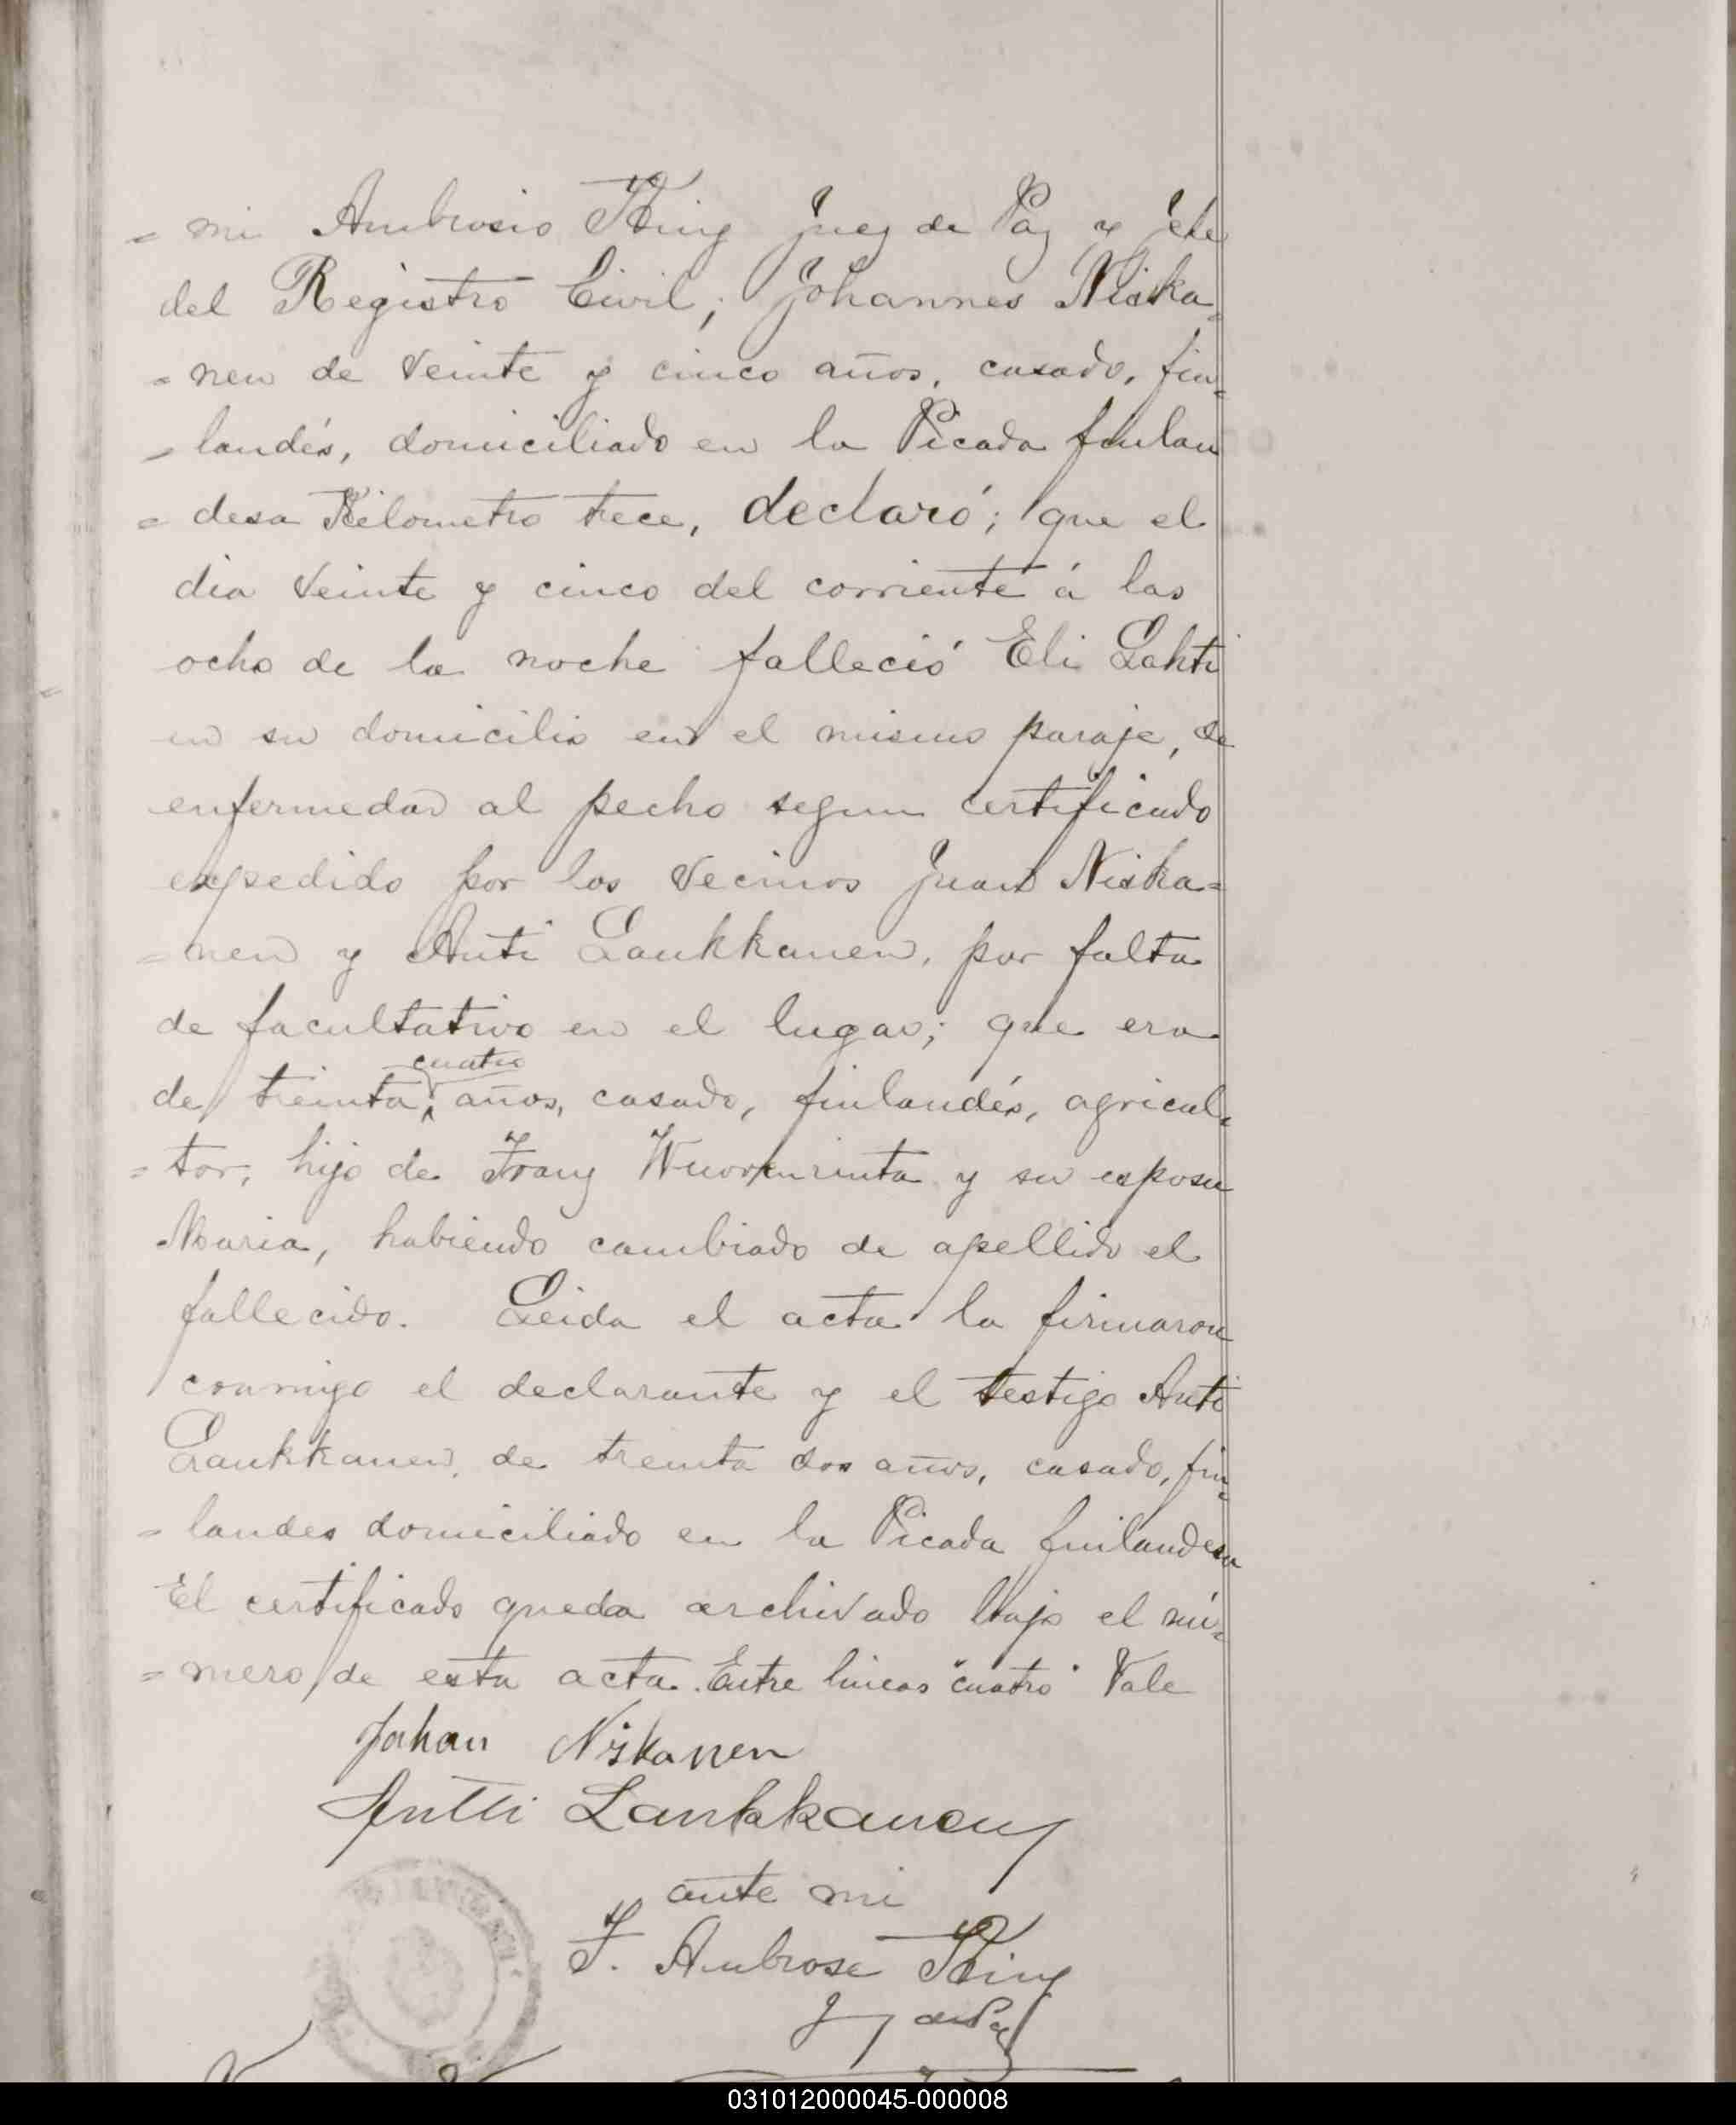 = mi Ambrosio King Juez de Paz y Jefe
del Registro Civil; Johannes Niska=
= nen de veinte y cinco años, casado, fin=
= landés, domiciliado en la Picada finlan
= desa Kilometro trece, declaró; que el
dia veinte y cinco del corriente á las
ocho de la noche falleció Eli Lahti
en su domicilio en el mismo paraje, de
enfermedad al pecho segun certificado
expedido por los vecinos Juan Niska=
= nen y Anti Laukkanen, por falta
de facultativo en el lugar; que era
de treinta cuatro años, casado, finlandés, agricul=
= tor, hijo de Franz Wuorenrinta y su esposa
Maria, habiendo cambiado de apellido el
fallecido. Leida el acta la firmaron
conmigo el declarante y el testigo Anti
Laukkanen, de treinta dos años, casado, fin=
= landes domiciliado en la Picada finlandesa
El certificado queda archivado bajo el nú=
= mero de esta acta. Entre lineas "cuatro" Vale
Johan Niskanen
Antti Laukkanen
ante mi
F. Ambrose King
Juez de Paz
031012000045-000008